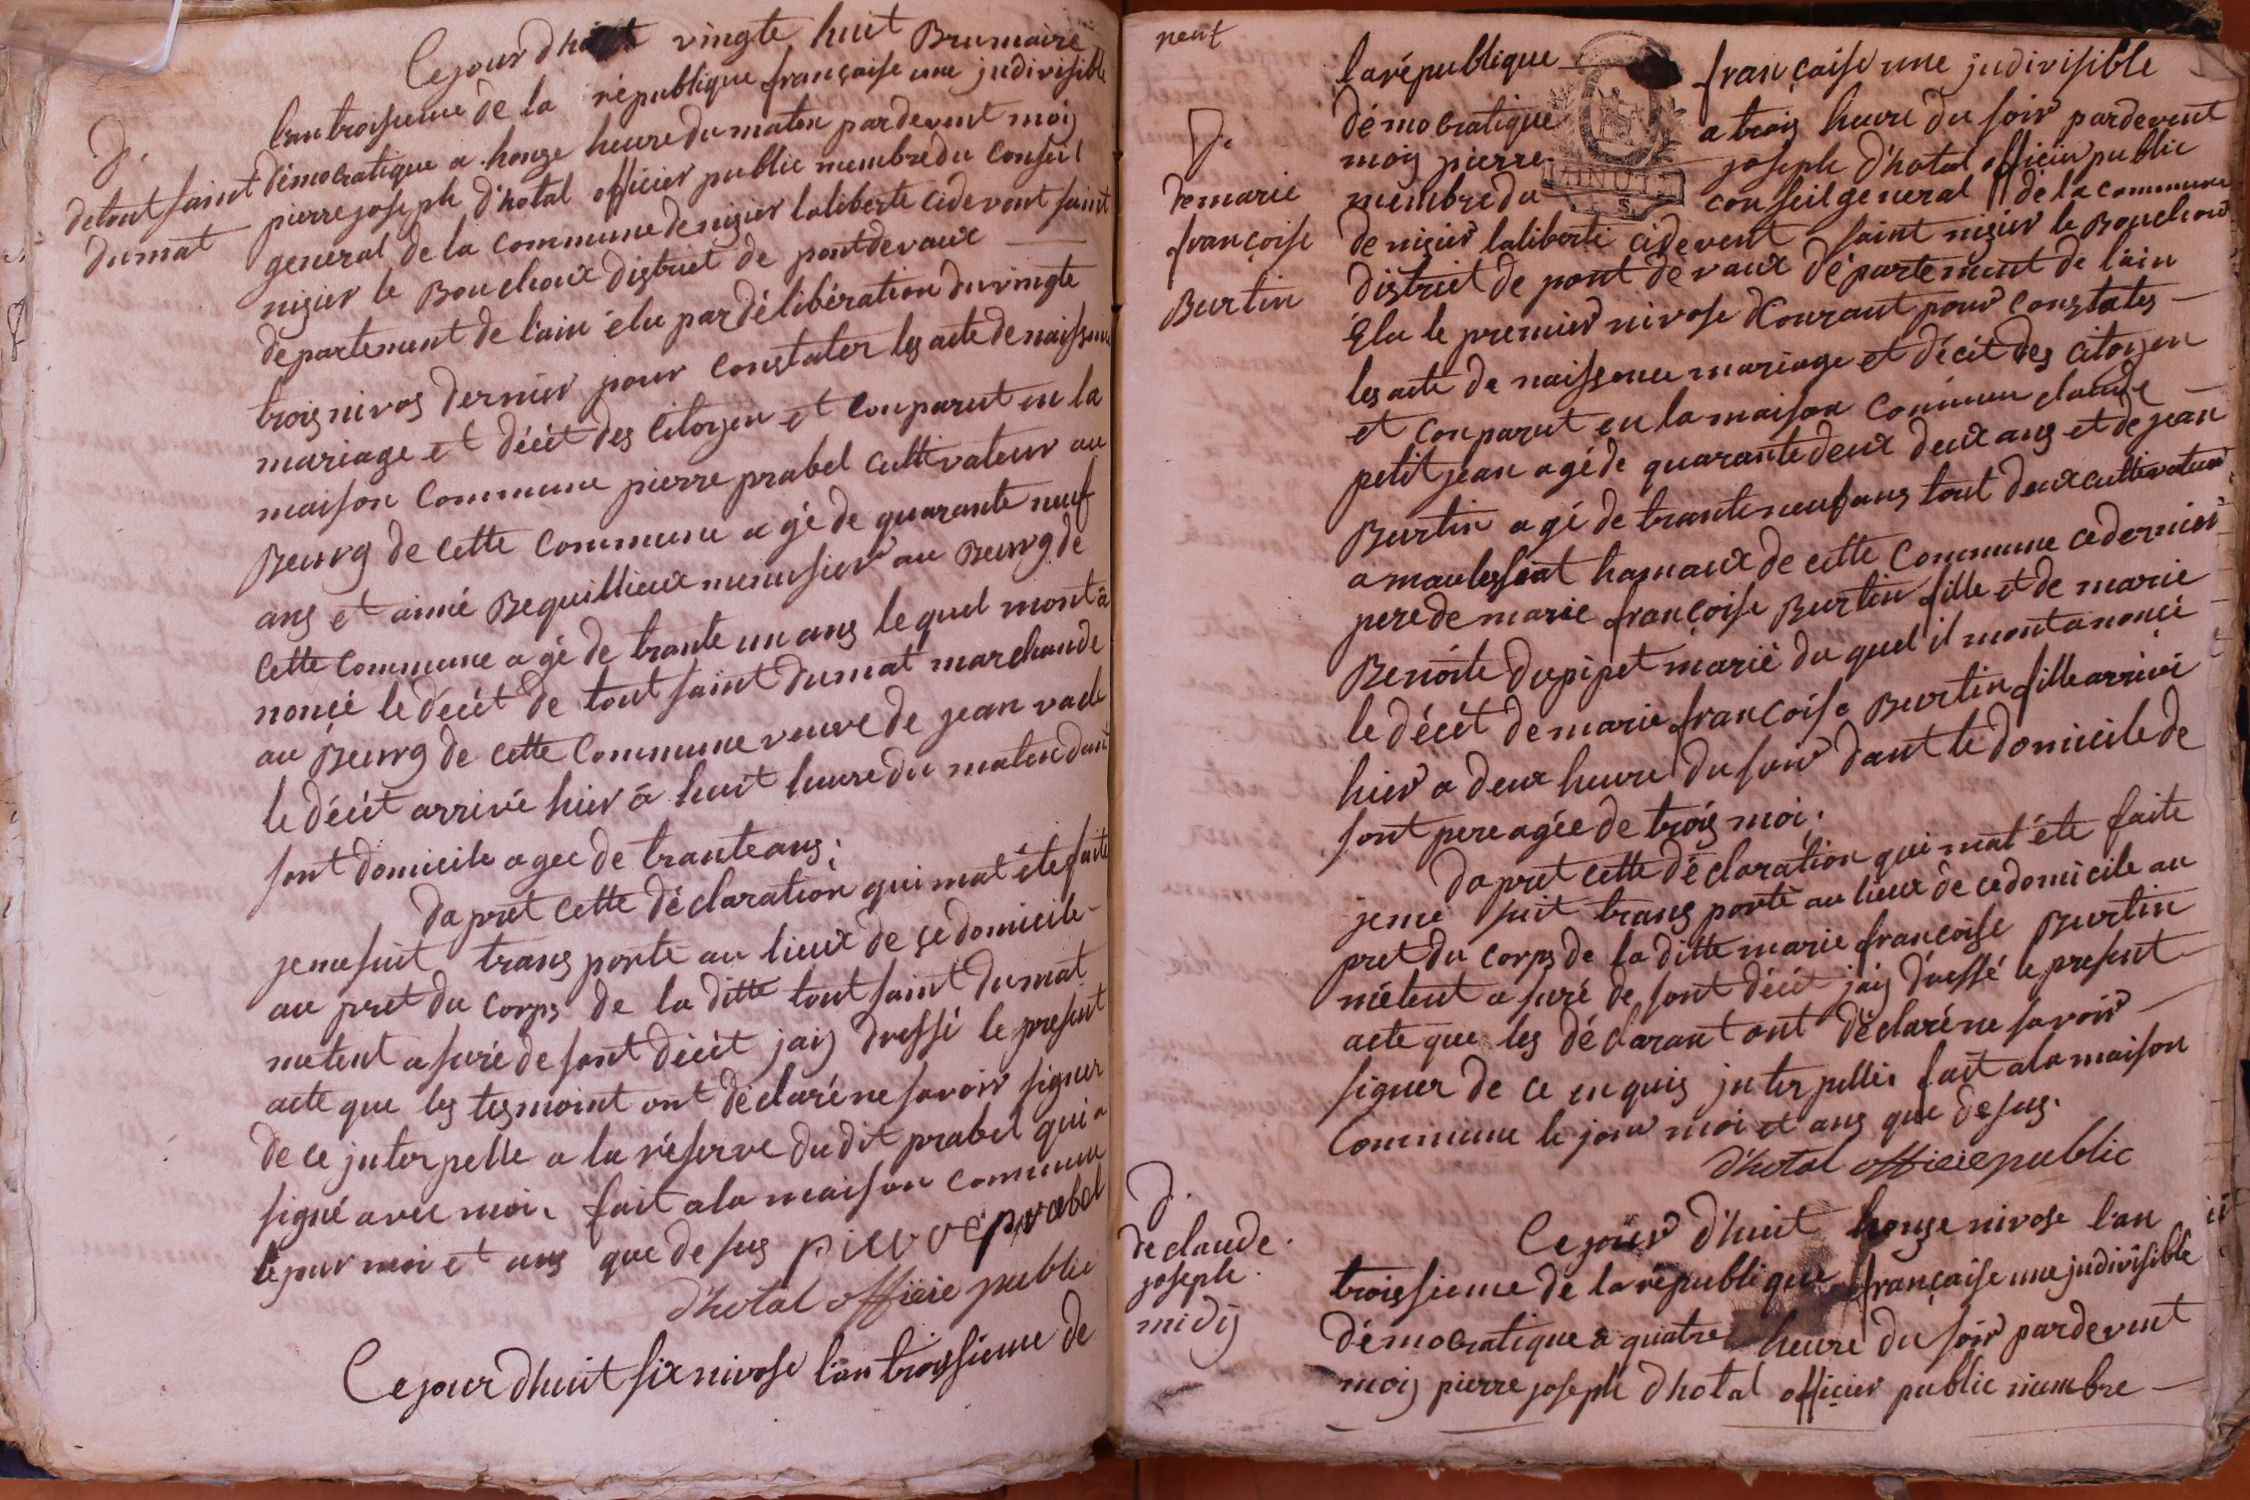 Cejour dhuit vingte huit Brumaire
l'an troisieme de la république françoise une jndivisible
D.
de tout saint
dumat
démocratique a honze heure du maten pardevent moy
pierre joseph d'hotal officier public membre du Conseil
general de la Commune de nizier laliberte cidevent saint
nizier le Bouchoux district de pontdevaux
departement de l'ain élu par délibération du vingte
trois nivos dernier pour Constater les acte de naissance
mariage et décét des Citoyen et Conparut en la
maison Commune pierre prabel Cultivateur au
Beurg de cette Commune agé de quarante neuf
ans et aimé Bequillieux menusier au Beurg de
cette Commune agé de trante un ans le quel mont a
noncé le décét de tout saint Dumat marchande
au Beurg de cette Commune veuve de jean vade
le décét arrivé hier à huit heure du maten dant
sont domicile agee de trante ans.
Da pret cette déclaration qui mat été faite
jeme suit transporté au lieux de se domicile
au pret du Corps de la ditte tout saint Dumat
metent asuré de sont décét jaiy dressé le present
acte que les tesmoint ont déclaré ne savoir signer
de ce juterpelle a la réserve dudit prabel qui a
signé avec moi. fait a la maison commune
le jour moi et ans que desus pierre prabel
d'hotal officie public
Cejour dhuit six nivose l'an troissieme de
neuf
la république françaisse une judivisible
démocratique a trois heure du soir pardevent
moiy pierre joseph d'hotal officier public
membre du conseil general de la commune
MINUTE
D.
de marie
françoise
Burtin
de nizier laliberté cidevent saint nizier le Bouchoux
district de pont de vaux département de l'ain
Élu le premier nivose Courant pour Constates
les acte de naissance mariage et décét des citoyen
et Conparut en la maison Commune claude
petit jean agé de quarante deux deux ans et de jean
Burtin agé de trante neuf ans tout deux cultivateur
a maulessent hamaux de cette Commune cedernier
pere de marie françoise Burtin fille et de marie
Benoite dupipet marié du quel il mont anoncé
le décét de marie françoise Burtin fille arrivé
hier a deux heure du soir dant le domicile de
sont pere agée de trois moi.
Da pret cette déclaration qui mat été faite
jeme suit transporté au lieux de ce domicile au
pret du corps de la ditte marie françoise Burtin
métent asuré de sont décét jaiy dressé le present
acte que les déclarant ont déclaré ne savoir
signer de ce enquis juterpellé. fait a la maison
Commune le jour moi et ans que desus.
d'hotal officie public
D.
de claude
joseph
midiy
Cejour d'huit honze nivose l'an
troissieme de la république françaisse une judivisible
démocratique a quatre heure du soir pardevent
moiy pierre joseph dhotal officier public membre